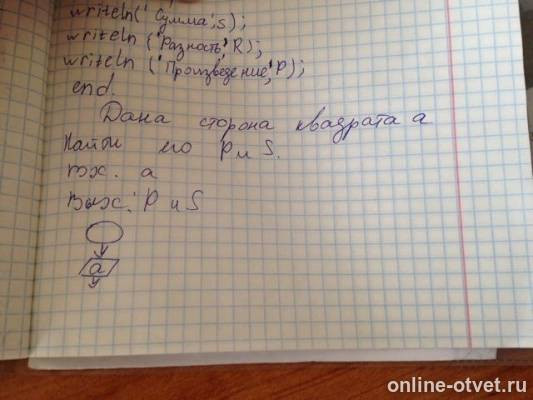 writeln('Сумма',s);
writeln ('Разность',R);
writeln ('Произведение',P);
end.
Дана сторона квадрата a
Найти его P и S.
вх. a
Вых: P и S
a
online-otvet.ru